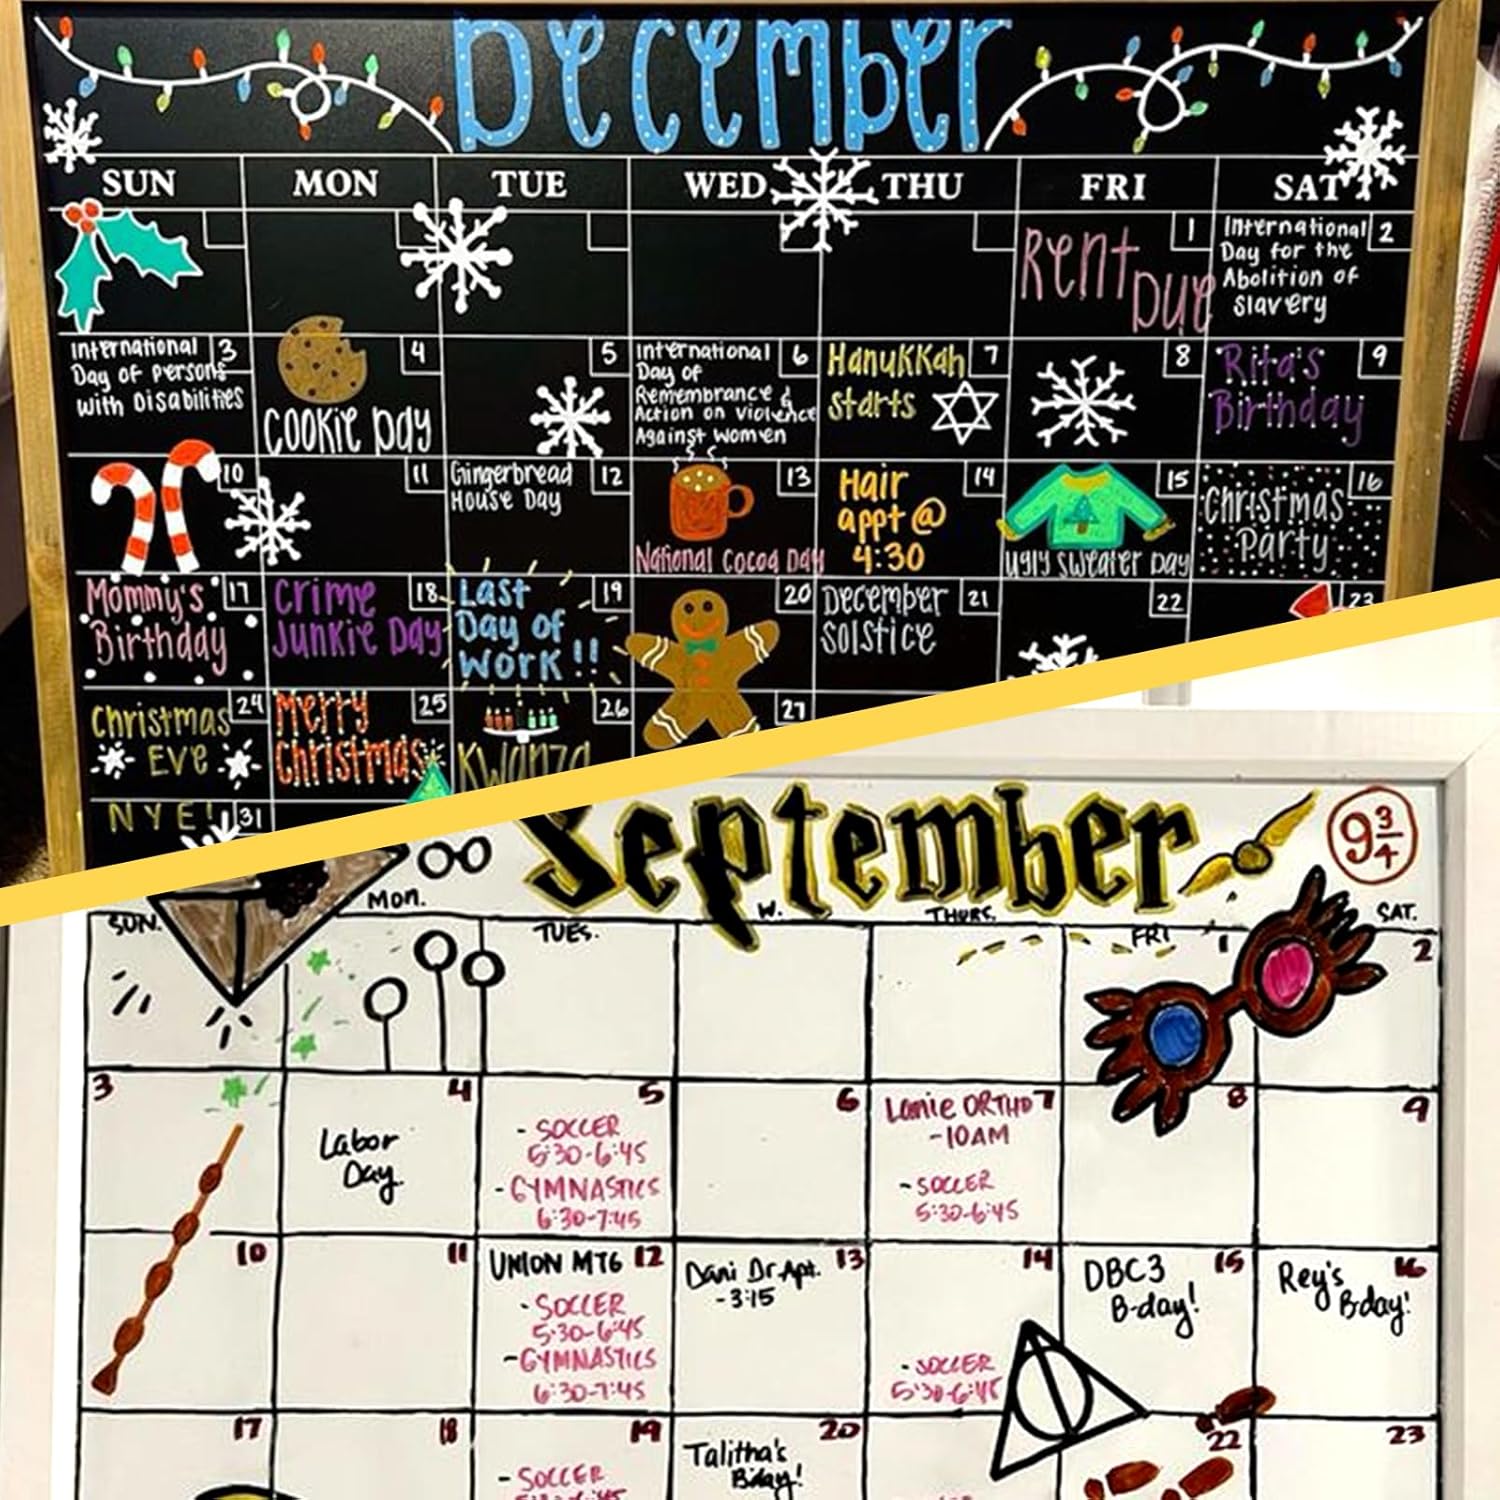 December
SUN MON TUE WED THU FRI SAT
1
Rent
Due
2
International
Day for the
Abolition of
Slavery
3
International
Day of persons
with Disabilities
4
COOKIE DAY
5
6
International
Day of
Remembrance &
Action on violence
Against women
7
Hanukkah
starts
8
9
Rita's
Birthday
10
11
12
Gingerbread
House Day
13
National Cocoa Day
14
Hair
appt @
4:30
15
Ugly Sweater Day
16
Christmas
Party
17
Mommy's
Birthday
18
Crime
Junkie Day
19
Last
Day of
Work!!
20
21
December
Solstice
22
23
24
Christmas
Eve
25
Merry
Christmas
26
Kwanza
27
31
NYE!
September
9 3/4
SUN. Mon. TUES. W. THURS. FRI SAT.
1
2
3
4
Labor
Day
5
- SOCCER
5:30-6:45
- GYMNASTICS
6:30-7:45
6
7
Lanie ORTHO
-10AM
- SOCCER
5:30-6:45
8
9
10
11
12
UNION MTG
- SOCCER
5:30-6:45
- GYMNASTICS
6:30-7:45
13
Dani Dr Apt.
- 3:15
14
- SOCCER
5:30-6:45
15
DBC3
B-day!
16
Rey's
Bday!
17
18
19
- SOCCER
20
Talitha's
Bday!
22
23